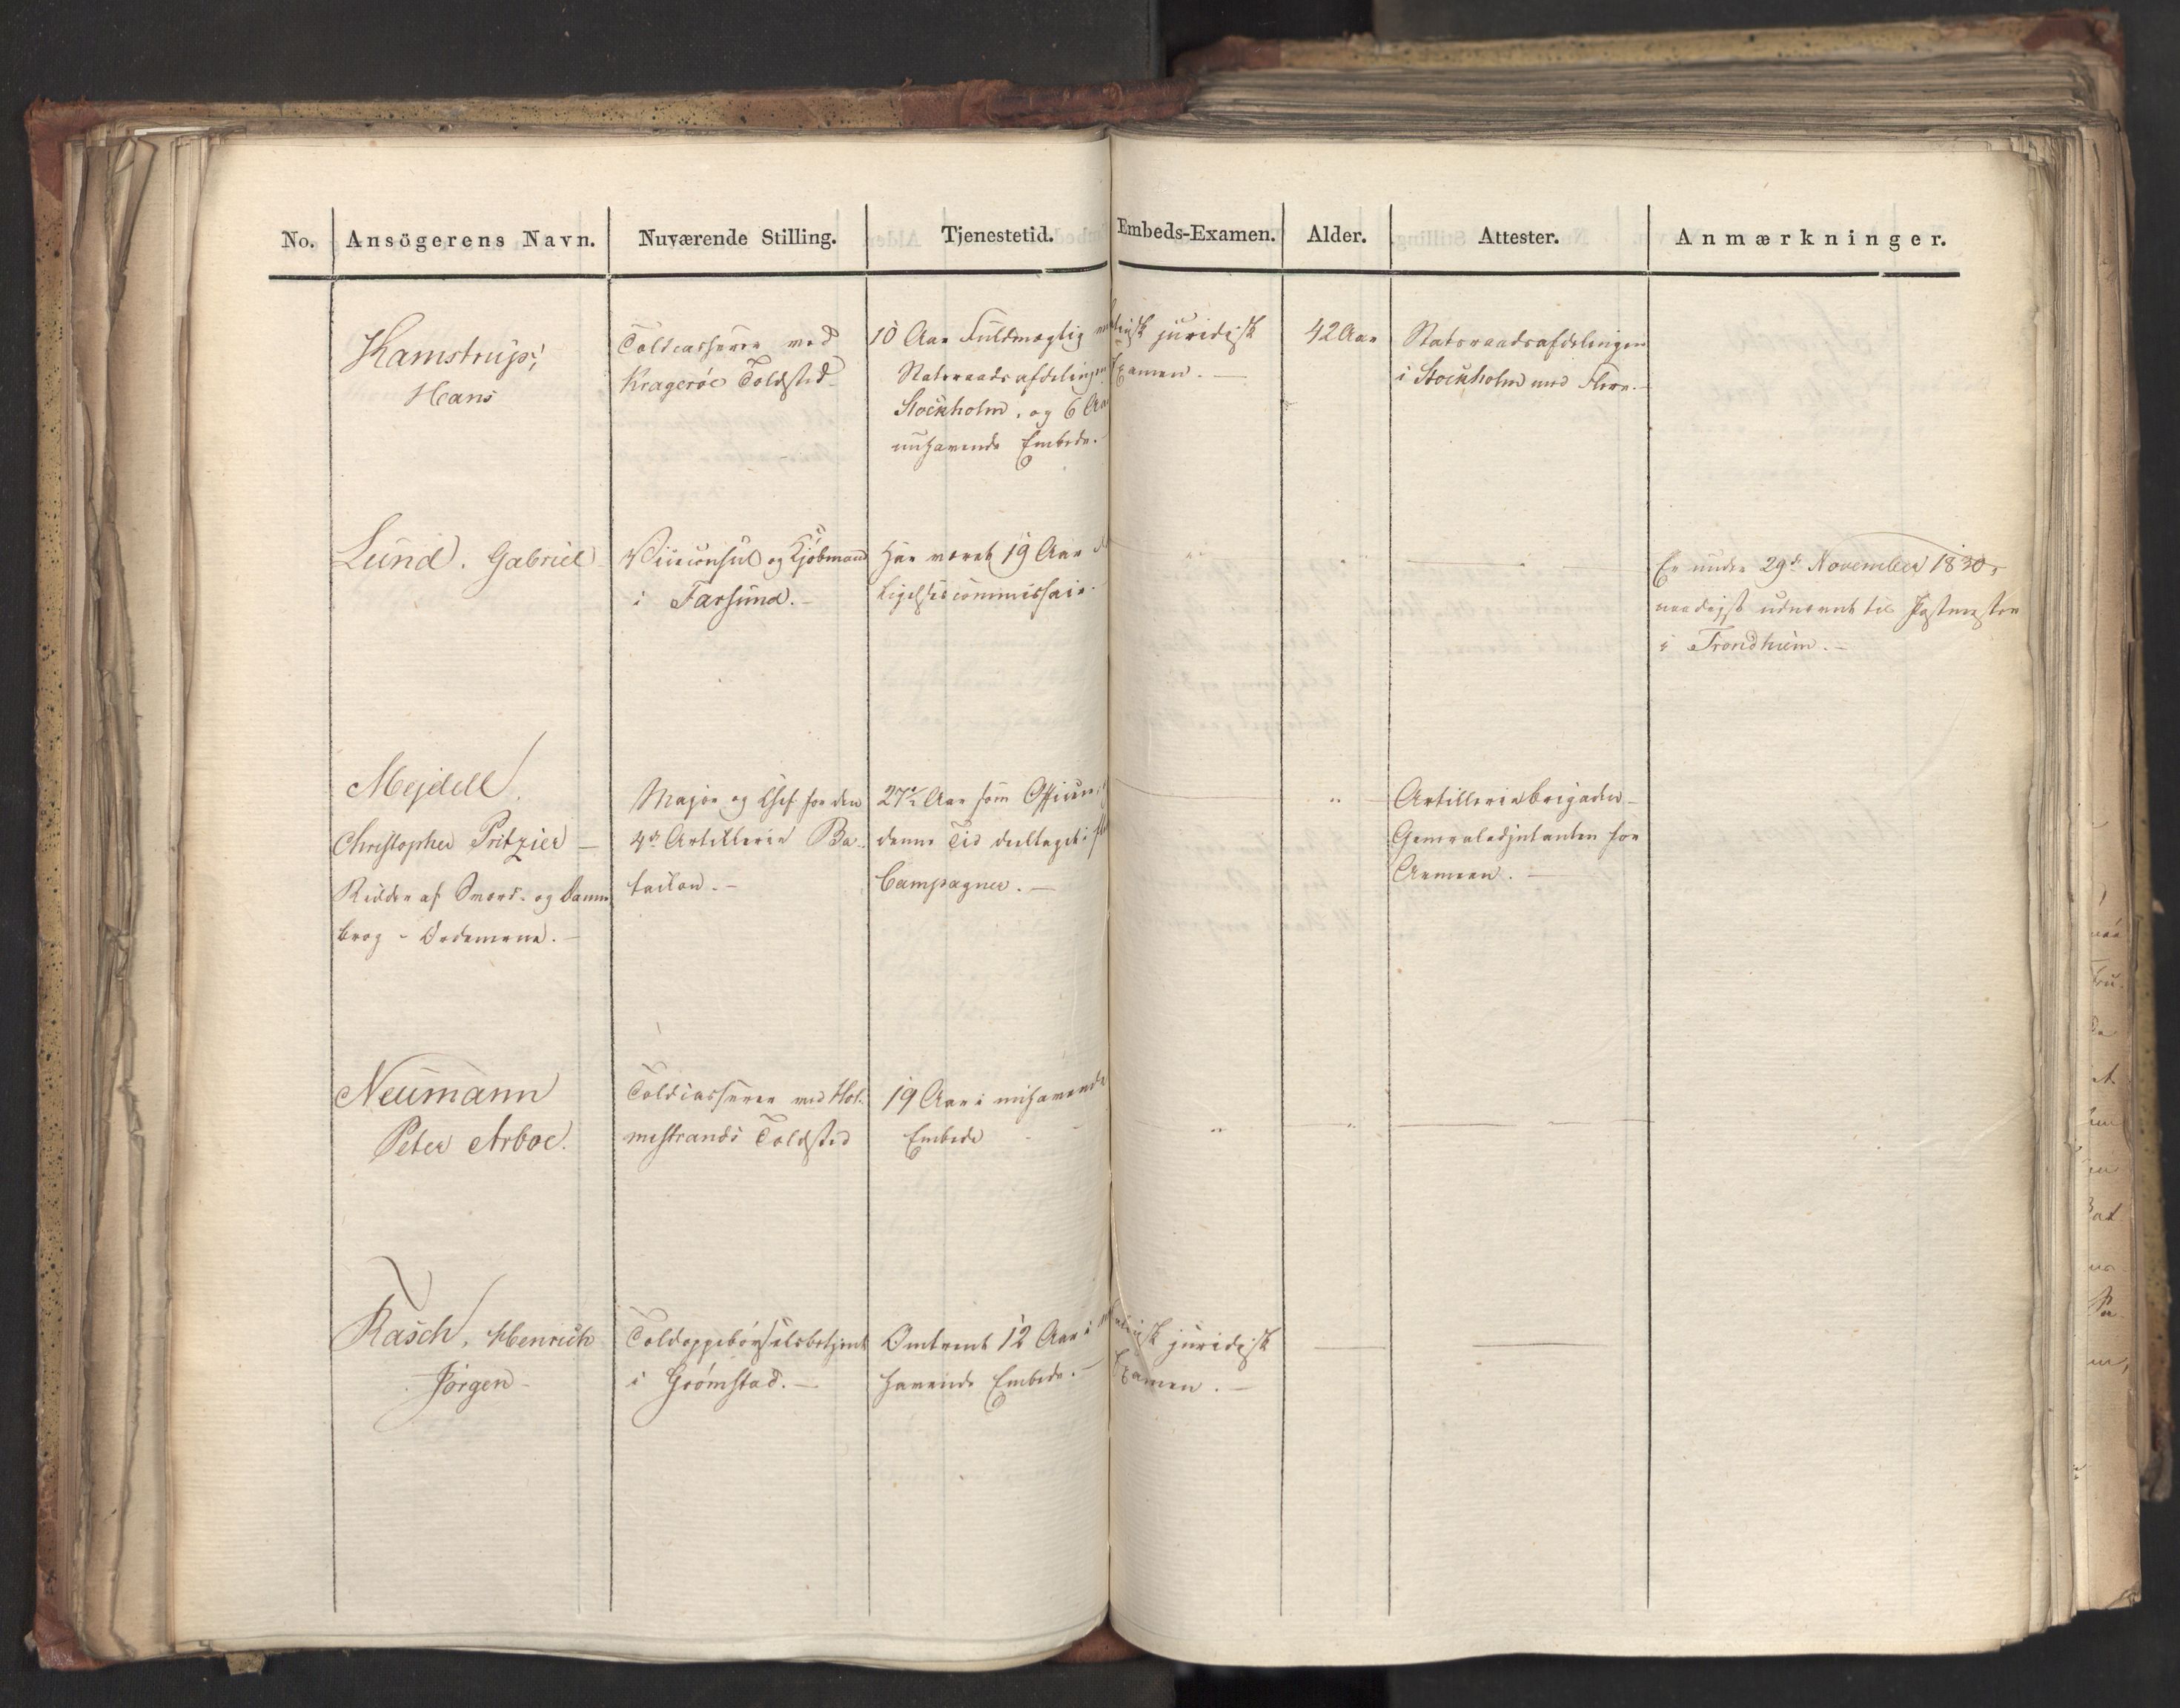 No. Ansögerens Navn. Nuværende Stilling. Tjenestetid. Embeds-Examen. Alder. Attester. Anmærkninger.
Hamstrup,
Hans
Toldcasserer ved
Kragerøe Toldsted
10 Aar Fuldmægtig
Statsraadsafdelingen
Stockholm, og 6 Aar
nuhavende Embede.
juridisk
Examen. —
42 Aar
Statsraadsafdelingen
i Stockholm med Flere. —
Lund, Gabriel
Viceconsul og Kjøbmand
i Farsund. —
Har været 19 Aar
ligelsescommissair. —
Er under 29de November 1830,
naadigst udnævnt til Postmester
i Trondhiem. —
Mejdell,
Christopher Pritzier —
Ridder af Sværd- og Danne
brog - Ordenerne. —
Major og Chef for den
4de Artillerie Ba-
tailon. —
27½ Aar som Officier,
denne Tid deeltaget i
Campagner. —
Artilleriebrigaden —
Generaladjutanten for
Armeen. —
Neumann
Peter Arboe.
Toldcasserer ved Hol-
mestrands Toldsted
19 Aar i nuhavende
Embede
Rasch, Henrich
Jörgen —
Toldoppebørselsbetjent
i Grømstad. —
Omtrent 12 Aar i
havende Embede. —
juridisk
Examen. —